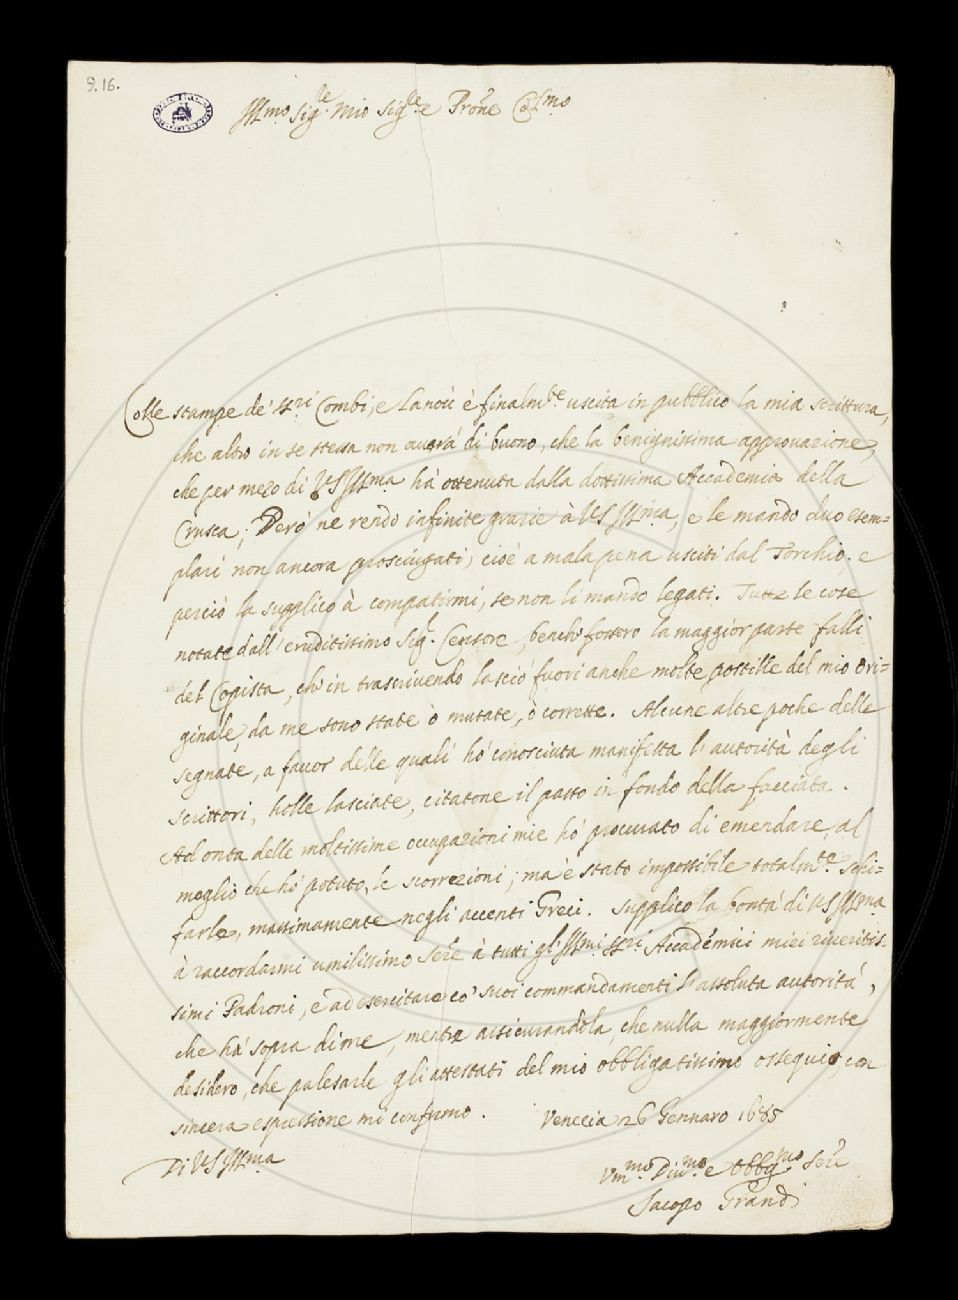 9.16.
Ill.mo Sig.re mio Sig.re e Pro͂ne Col.mo
Colle stampe de' SS.ri Combi, e Lanoù è finalm.te uscita in pubblico la mia scrittura,
che altro in se stessa non averà di buono, che la benignissima approvazione,
che per mezo di VS Ill.ma hà ottenuta dalla dottissima Accademia della
Crusca; Però ne rendo infinite grazie à VS Ill.ma, e le mando duo esem=
plari non ancora prosciugati, cioè a mala pena usciti dal Torchio, e
perciò la supplico à compatirmi, se non li mando legati. Tutte le cose
notate dall'eruditissimo Sig.r Censore, benche fossero la maggior parte falli
del Copista, ch'in trascrivendo lasciò fuori anche molte postille del mio Ori=
ginale, da me sono state ò mutate, ò corrette. Alcune altre poche delle
segnate, a favor delle quali hò conosciuta manifesta l'autorità degli
scrittori, holle lasciate, citatone il passo in fondo della facciata.
Ad onta delle moltissime occupazioni mie hò procurato di emendare, al
meglio che hò potuto, le scorrezioni; ma è stato impossibile totalm.te schi=
farle, massimamente negli accenti Greci. Supplico la bontà di VS Ill.ma
à raccordarmi umilissimo Ser͂e à tutti gl'Ill.mi SS.ri Accademici miei riveritis=
simi Padroni, e ad esercitare co' suoi commandamenti l'assoluta autorità,
che hà sopra di me, mentre assicurandola, che nulla maggiormente
desidero, che palesarle gli attestati del mio obbligatissimo ossequio, con
sincera espressione mi confirmo. Venezia 26 Gennaro 1685
Di VS Ill.ma
Vm.mo Diu.mo e Obbg.mo Ser͂e
Jacopo Grandi